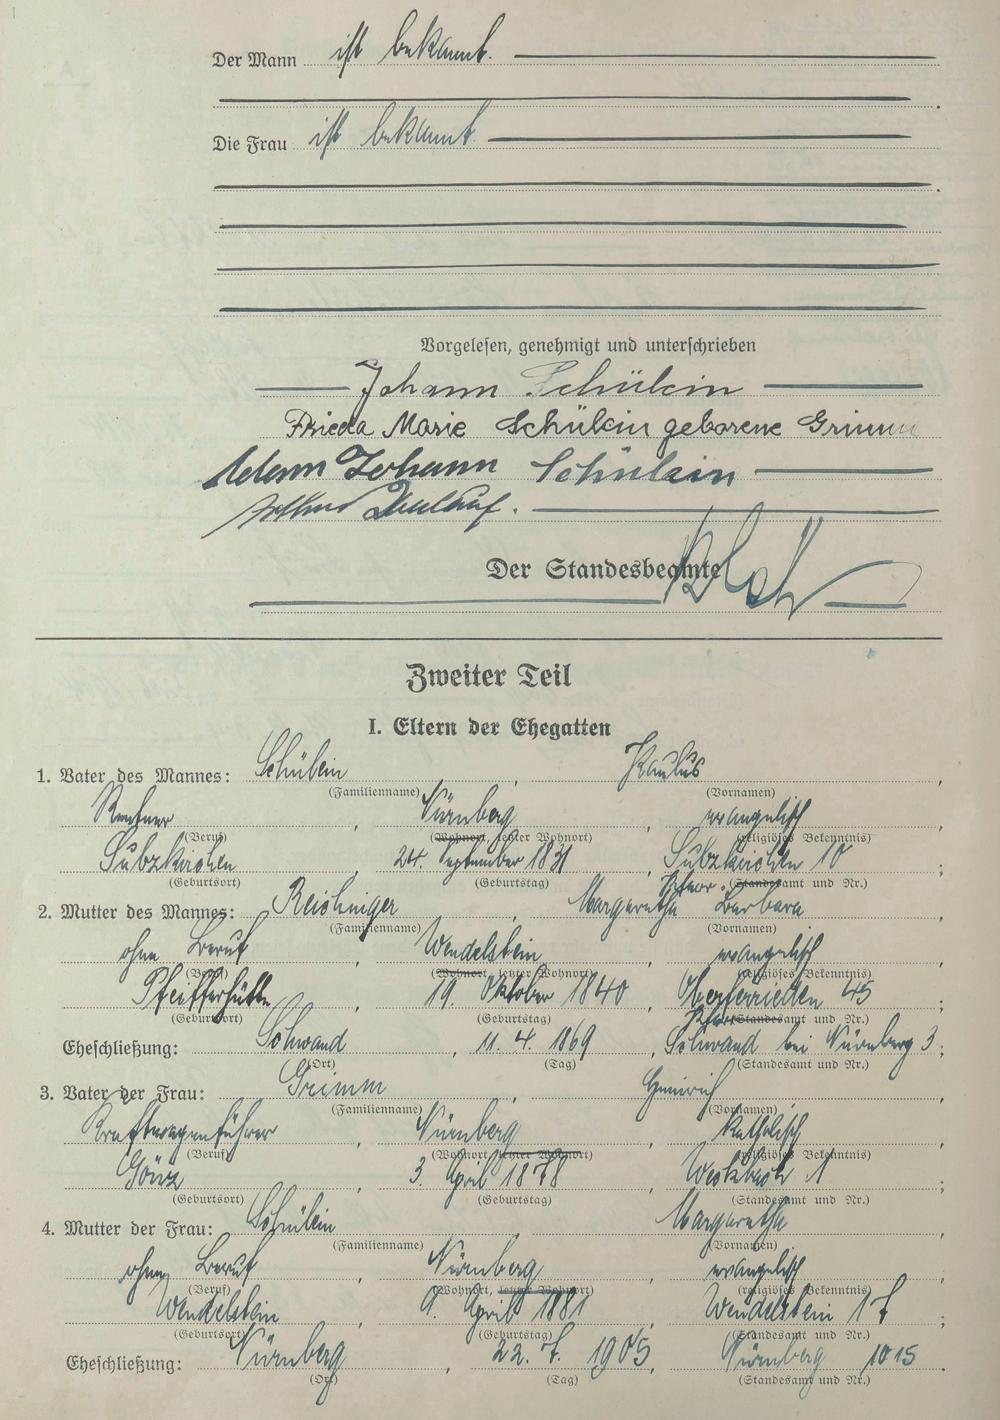 Der Mann ist bekannt.
Die Frau ist bekannt
Vorgelesen, genehmigt und unterschrieben
Johann Schülein
Frieda Marie Schülein geborene Grimm
Adam Johann Schülein
Arthur
Der Standesbeamte
Zweiter Teil
I. Eltern der Ehegatten
1. Vater des Mannes: Schülein, Paulus,
(Familienname) (Vornamen)
Rentner, Nürnberg, evangelisch,
(Beruf) (Wohnort, letzter Wohnort) (religiöses Bekenntnis)
Sulzkirchen 24. September 1831, Sulzkirchen 10;
(Geburtsort) (Geburtstag) Pfarr. (Standesamt und Nr.)
2. Mutter des Mannes: Reichinger, Margaretha Barbara
(Familienname) (Vornamen)
ohne Beruf, Wendelstein, evangelisch,
(Beruf) (Wohnort, letzter Wohnort) (religiöses Bekenntnis)
Pfeifferhütte, 19. Oktober 1840, Oberferrieden 45;
(Geburtsort) (Geburtstag) Pfarr (Standesamt und Nr.)
Eheschließung: Schwand, 11. 4. 1869, Schwand bei Nürnberg 3;
(Ort) (Tag) (Standesamt und Nr.)
3. Vater der Frau: Grimm, Heinrich,
(Familienname) (Vornamen)
Kraftwagenführer, Nürnberg, katholisch,
(Beruf) (Wohnort, letzter Wohnort) (religiöses Bekenntnis)
3. April 1878, 1;
(Geburtsort) (Geburtstag) (Standesamt und Nr.)
4. Mutter der Frau: Schülein, Margaretha,
(Familienname) (Vornamen)
ohne Beruf, Nürnberg, evangelisch,
(Beruf) (Wohnort, letzter Wohnort) (religiöses Bekenntnis)
Wendelstein, 9. April 1881, Wendelstein 17;
(Geburtsort) (Geburtstag) (Standesamt und Nr.)
Eheschließung: Nürnberg, 22. 7. 1905, Nürnberg 1015.
(Ort) (Tag) (Standesamt und Nr.)